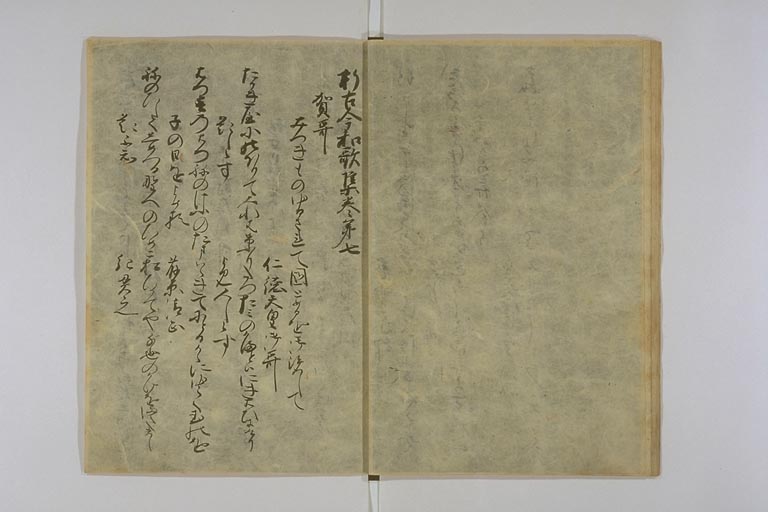 新古今和歌集巻第七
賀哥
みつきものゆるされて国とめるを御覧して
仁徳天皇御哥
たかき屋にのほりてみれは煙たつたみのかまとはにきはひにけり
題しらす
よみ人しらす
はつ春のはつねのけふのたまはゝきてにとるからにゆらくたまのを
子の日をよめる
藤原清正
ねのひしてしめつる野へのひめこ松ひかてやちよのかけをまたまし
題しらす
紀貫之